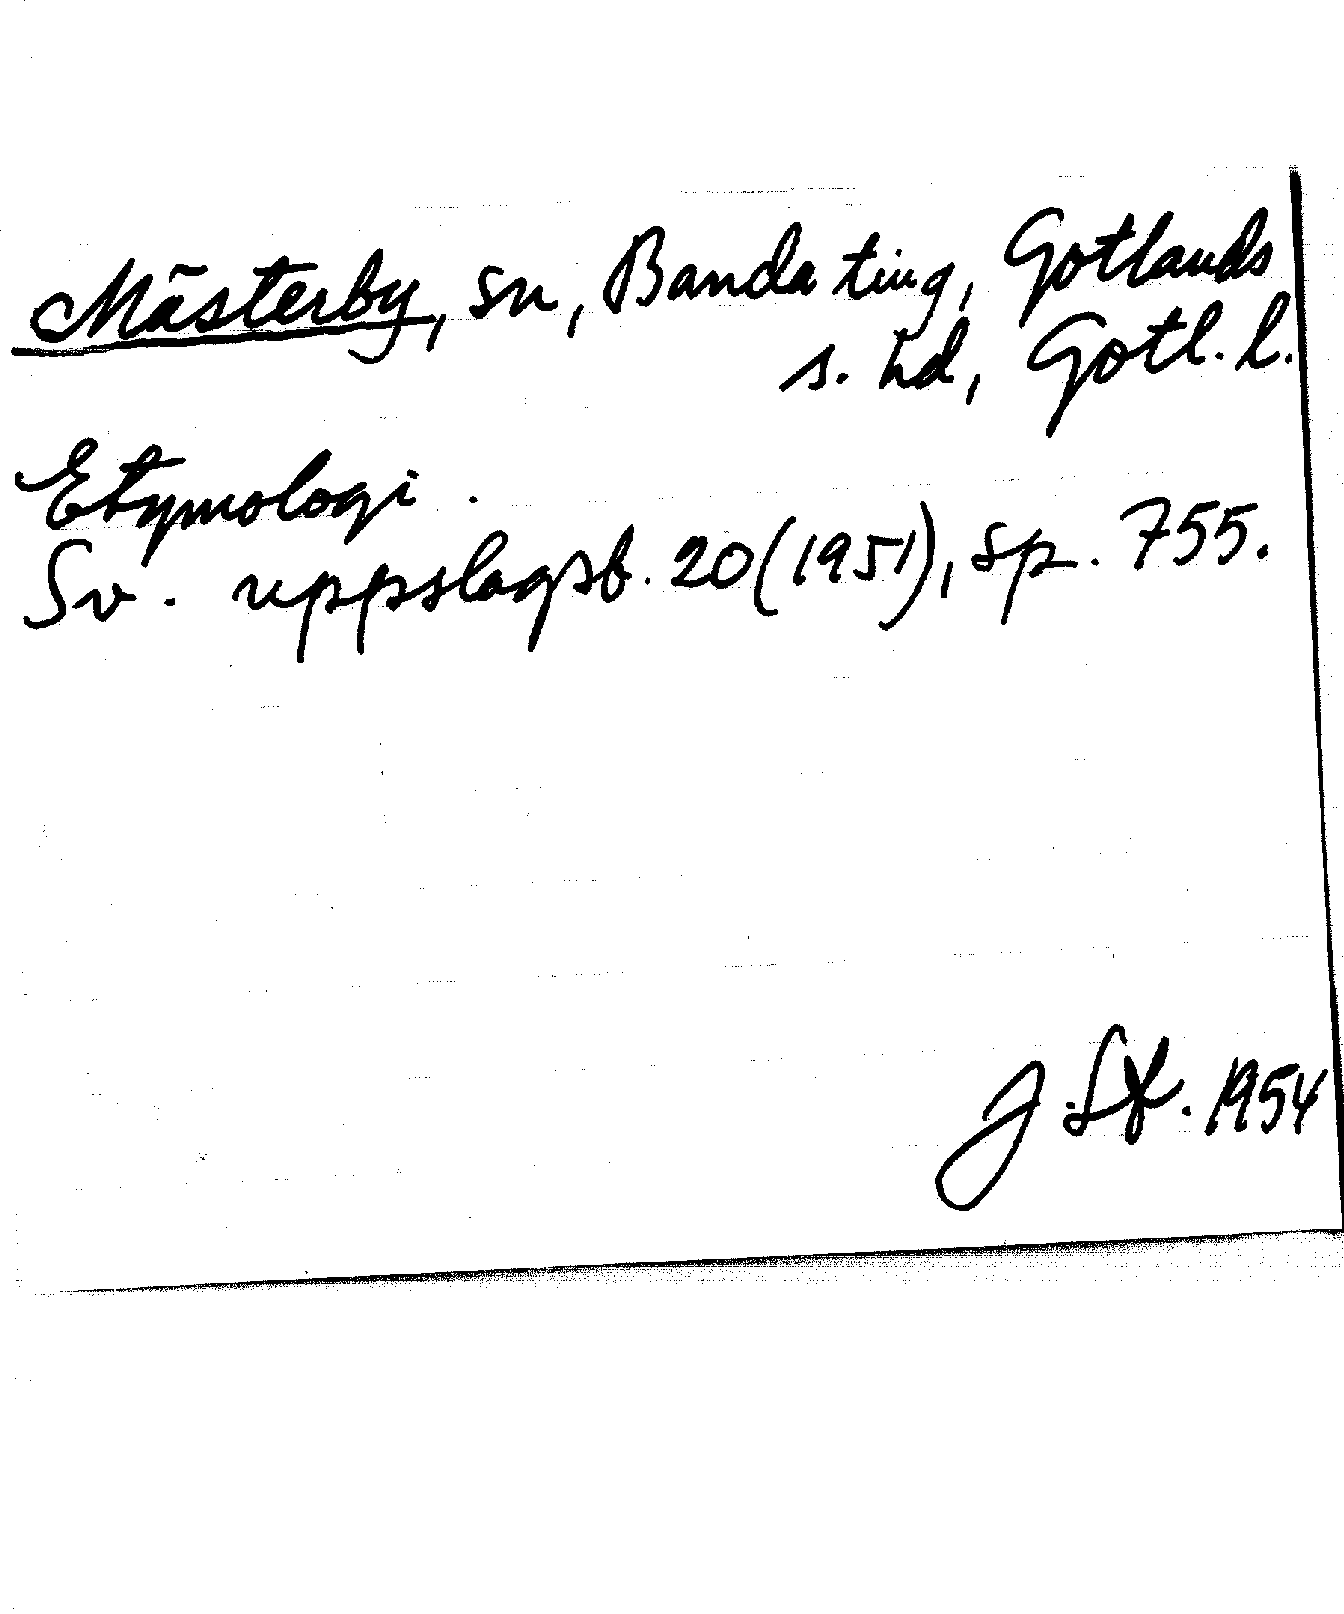 Mästerby, sn, Banda ting, Gotlands
s. hd, Gotl. l.
Etymologi.
Sv. uppslagsb. 20 (1951), sp. 755.
J. Sf. 1954